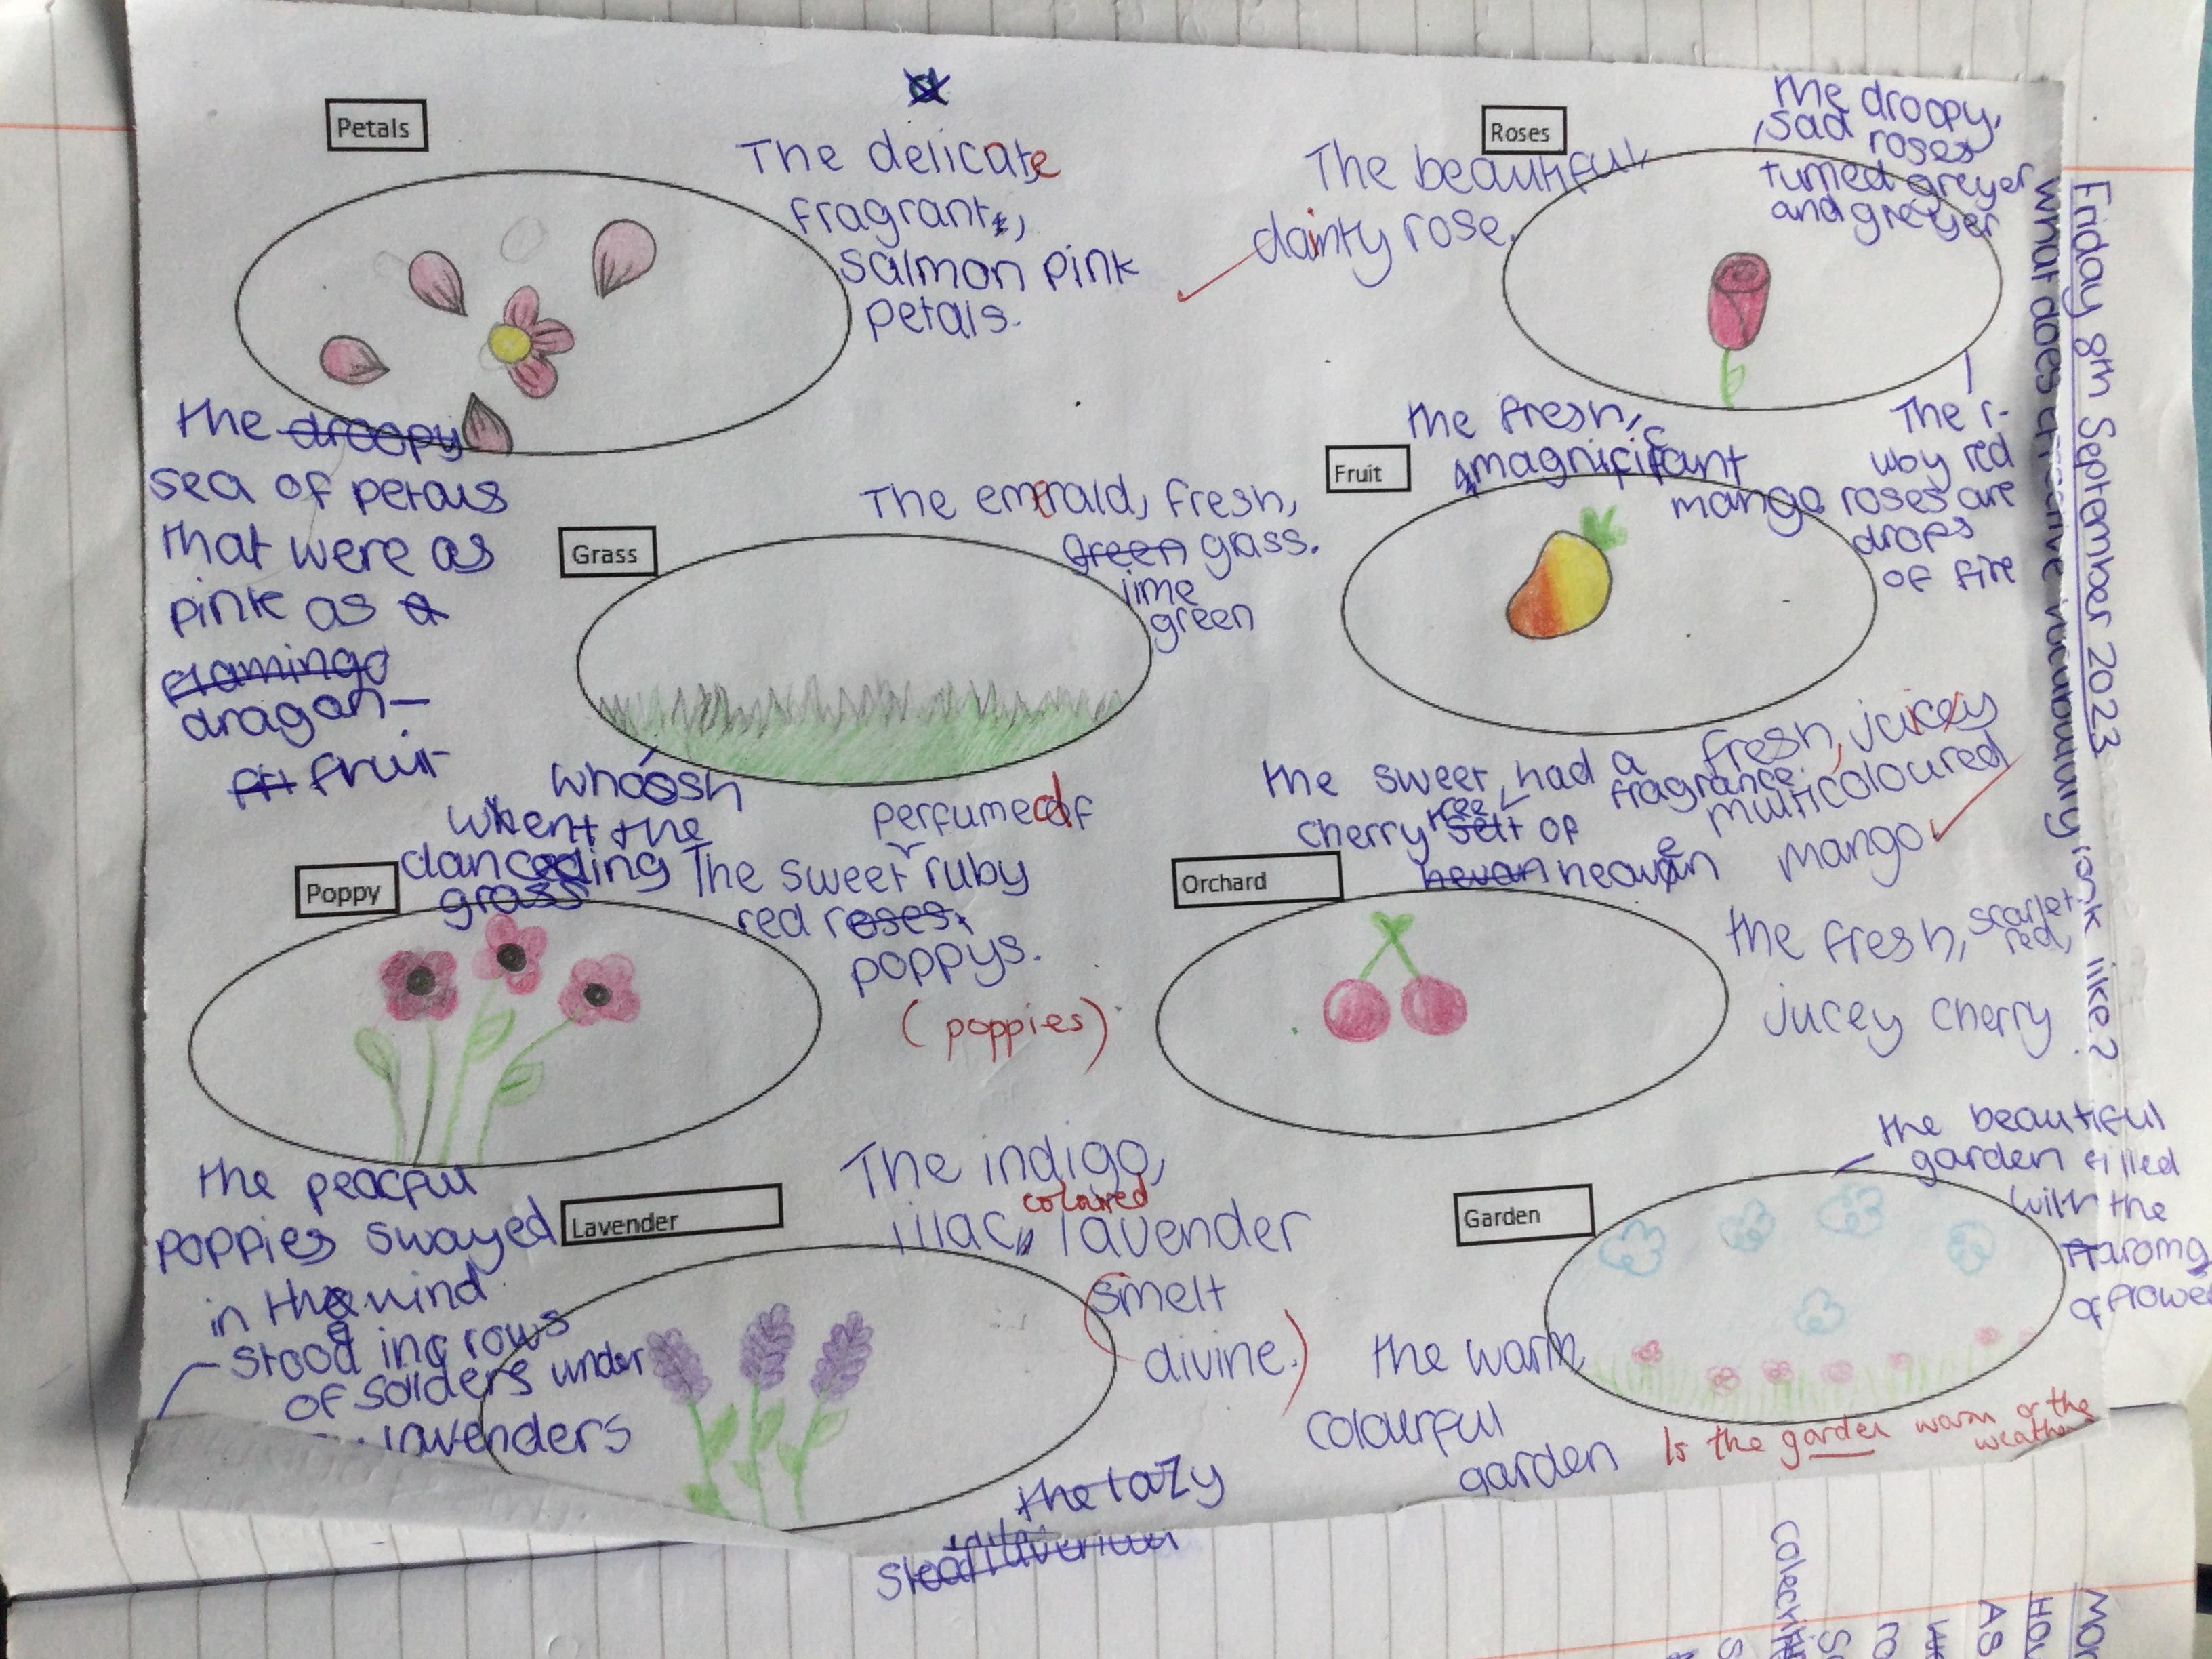 Friday 8th September 2023
What does creative vocabulary look like?
Petals
The delicate
fragrant,
salmon pink
petals.
the droopy
sea of petals
that were as
pink as a
flamingo
dragon-
fruit
Roses
The beautiful
dainty rose.
The droopy,
sad roses
turned greyer
and greyer
The r-
uby red
roses are
drops
of fire
Grass
The emerald, fresh,
green grass.
lime
green
whoosh
went the
dancing
grass
Fruit
the fresh,
magnificant
mango
fresh, juicy
multicoloured
mango
Poppy
perfumed
The sweet ruby
red roses.
poppys.
(poppies)
the peacful
poppies swayed
in the wind
Orchard
the sweet had a
cherry tree fragrance
of
hevan heaven
the fresh, scarlet
red,
jucey cherry
Lavender
The indigo,
coloured
lilac, lavender
smelt
divine.)
stood in rows
of solders under
lavenders
the lazy
Garden
the beautiful
garden filled
with the
aroma
of flowe
the warm
colourful
garden
Is the garden warm or the
weather